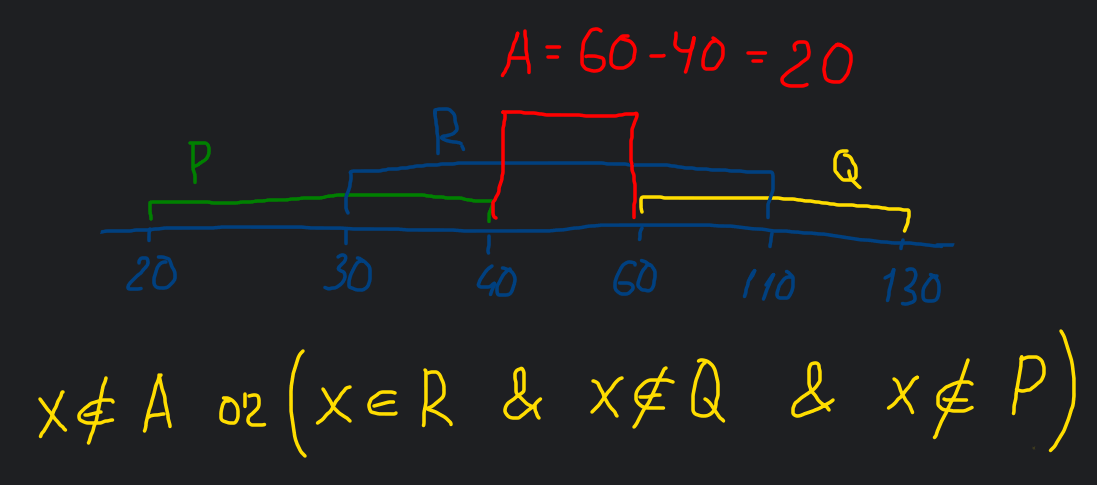 A = 60 - 40 = 20
P R Q
20 30 40 60 110 130
x ∉ A or (x ∈ R & x ∉ Q & x ∉ P)